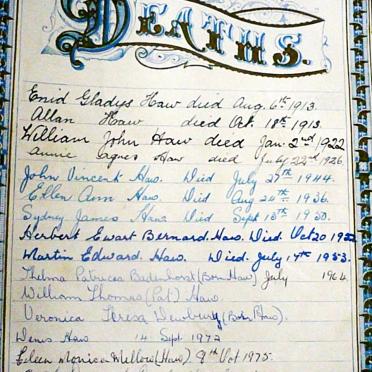 DEATHS.
Enid Gladys Haw died Aug. 6th 1913.
Allan Haw died Oct. 18th 1913
William John Haw died Jan. 2nd 1922
Annie Agnes Haw died July 22nd 1926.
John Vincent Haw. Died July 27th 1944.
Ellen Ann. Haw. Died Aug 24th 1936.
Sydney James Haw Died Sept 13th 1950.
Herbert Ewart Bernard. Haw. Died. Oct 20
Martin Edward. Haw. Died. July 14th 1953.
Thelma Patricea Badenhorst (Born Haw) July 1964
William Thomas (Pat) Haw.
Veronica Teresa Dewbury (Born Haw).
Denis Haw 14 Sept 1972
Eileen Monica Mellow (Haw) 9th Oct 1975.